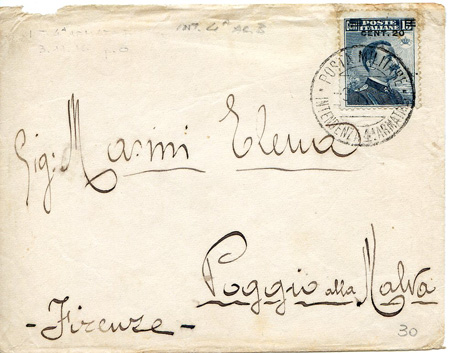 INT. 4ª AR. E
POSTE ITALIANE
15
CENT. 20
POSTA MILITARE
INTENDENZA 4ª ARMATA
Sig: Masini Elena
Poggio alla Malva
- Firenze -
30